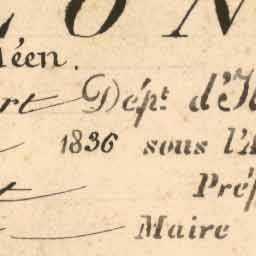 ON
Méen.
Dépt. d'Il
1836 sous l'A
Préf
Maire